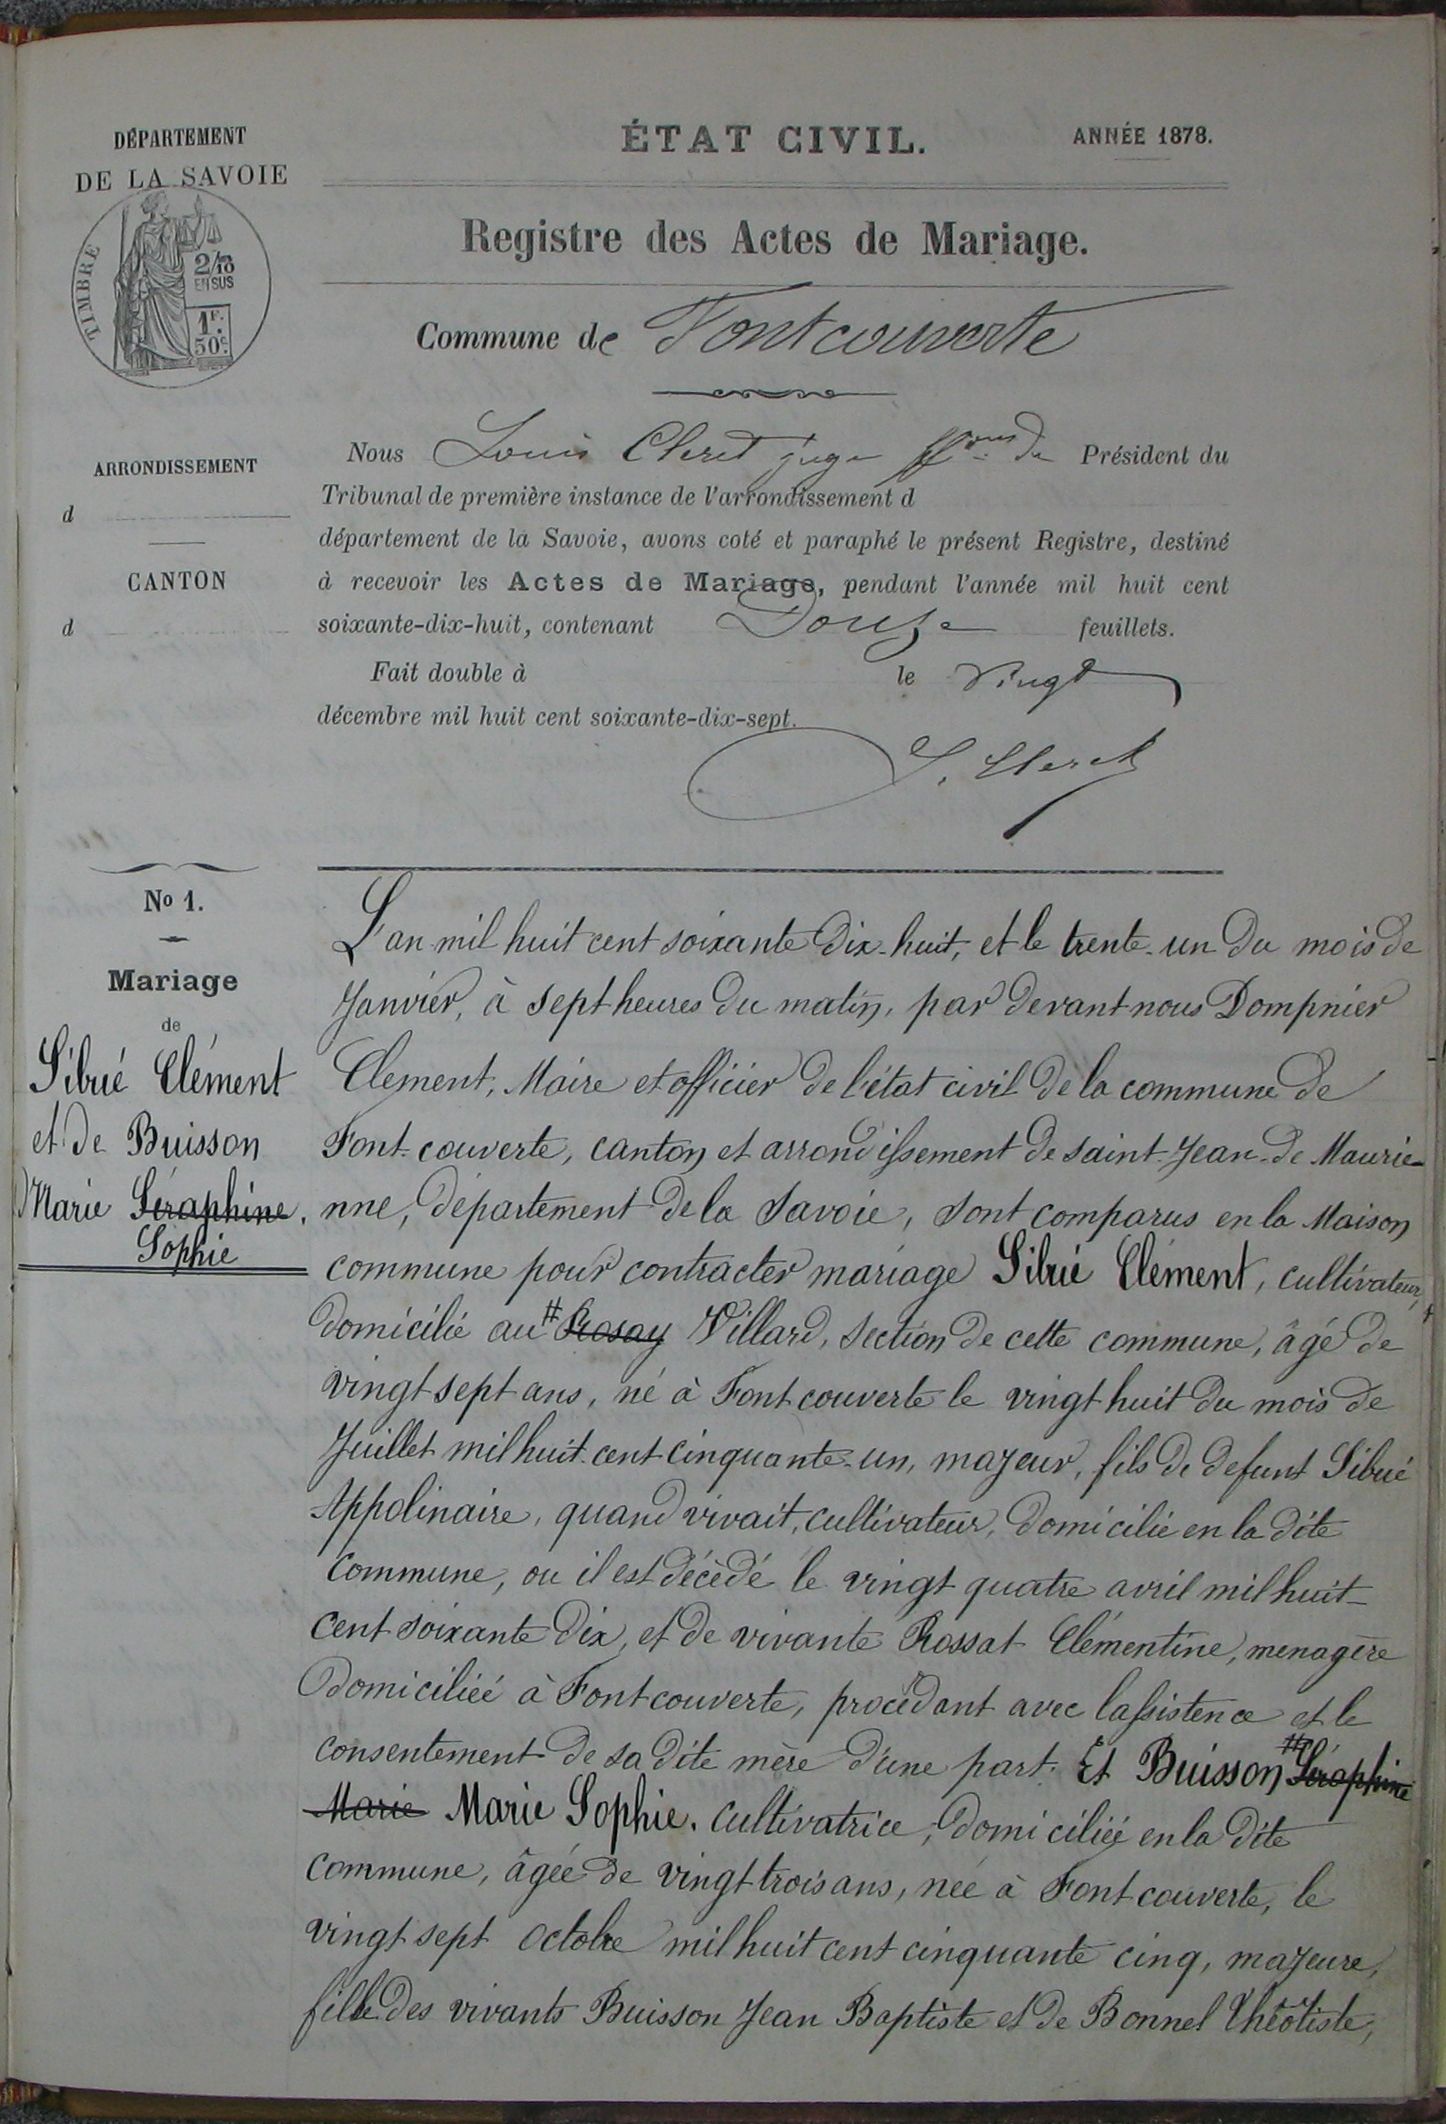 DÉPARTEMENT
DE LA SAVOIE
TIMBRE
2/10
EN SUS
1F.
50c.
ÉTAT CIVIL.
ANNÉE 1878.
Registre des Actes de Mariage.
Commune de Fontcouverte
ARRONDISSEMENT
d
CANTON
d
Nous Louis Cleret juge ffons de Président du
Tribunal de première instance de l'arrondissement d
département de la Savoie, avons coté et paraphé le présent Registre, destiné
à recevoir les Actes de Mariage, pendant l'année mil huit cent
soixante-dix-huit, contenant Douze feuillets.
Fait double à le vingt
décembre mil huit cent soixante-dix-sept.
L. Cleret
No 1.
Mariage
de
Sibué Clément
et de Buisson
Marie Séraphine.
Sophie
L'an mil huit cent soixante dix-huit, et le trente-un du mois de
Janvier, à sept heures du matin, par devant nous Dompnier
Clement, Maire et officier de l'état civil de la commune de
Font-couverte, canton et arrondissement de saint-Jean-de Maurie-
nne, département de la Savoie, sont comparus en la Maison
commune pour contracter mariage Sibué Clément, cultivateur,
domicilié au # Rosay Villard, section de cette commune, âgé de
vingt sept ans, né à Font couverte le vingt huit du mois de
Juillet mil huit-cent cinquante-un, majeur, fils de defunt Sibué
Appolinaire, quand vivait, cultivateur, domicilié en la dite
commune, ou il est décèdé le vingt quatre avril mil huit-
cent soixante dix, et de vivante Rossat Clémentine, menagère
domiciliée à Font couverte, procèdant avec lassistence et le
consentement de sa dite mère d'une part. Et Buisson # Séraphine
Marie Marie Sophie. cultivatrice, domiciliée en la dite
commune, âgée de vingt trois ans, née à Font couverte, le
vingt sept octobre mil huit cent cinquante cinq, majeure,
fille des vivants Buisson Jean Baptiste et de Bonnel Théotiste,